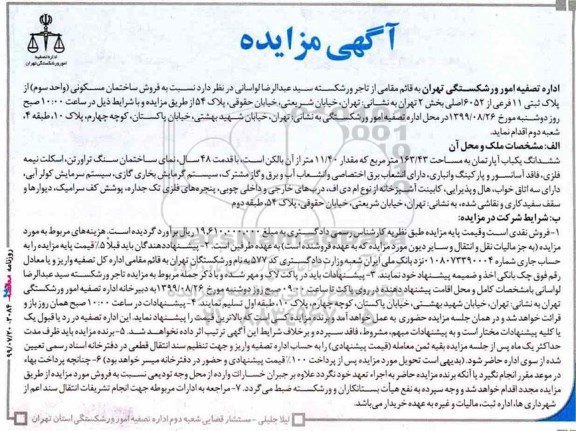 آگهی مزایده
اداره تصفیه
امور ورشکستگی تهران
اداره تصفیه امور ورشکستگی تهران به قائم مقامی از تاجر ورشکسته سید عبدالرضا لواسانی در نظر دارد نسبت به فروش ساختمان مسکونی (واحد سوم) از
پلاک ثبتی ۱۱ فرعی از ۶۰۵۲ اصلی بخش ۲ تهران به نشانی: تهران، خیابان شریعتی، خیابان حقوقی، پلاک ۵۴ از طریق مزایده و با شرایط ذیل در ساعت ۱۰:۰۰ صبح
روز دوشنبه مورخ ۱۳۹۹/۰۸/۲۶ در محل اداره تصفیه امور ورشکستگی به نشانی: تهران، خیابان شهید بهشتی، خیابان پاکستان، کوچه چهارم، پلاک ۱۰، طبقه ۴،
شعبه دوم اقدام نماید.
الف: مشخصات ملک و محل آن
ششدانگ یکباب آپارتمان به مساحت ۱۶۳/۴۳ متر مربع که مقدار ۱۱/۴۰ متر از آن بالکن است، با قدمت ۴۸ سال، نمای ساختمان سنگ تراورتن، اسکلت نیمه
فلزی، فاقد آسانسور و پارکینگ و انباری، دارای انشعاب برق اختصاصی و انشعاب آب و برق و گاز مشترک، سیستم گرمایش بخاری گازی، سیستم سرمایش کولر آبی،
دارای سه اتاق خواب، هال و پذیرایی، کابینت آشپزخانه از نوع ام دی اف، درب‌های خارجی و داخلی چوبی، پنجره‌های فلزی تک جداره، پوشش کف سرامیک، دیوارها و
سقف سفید کاری و نقاشی شده، به نشانی: تهران، خیابان شریعتی، خیابان حقوقی، پلاک ۵۴، طبقه دوم
ب: شرایط شرکت در مزایده:
۱- فروش نقدی است و قیمت پایه مزایده طبق نظریه کارشناس رسمی دادگستری به مبلغ ۱۹.۶۱۰.۰۰۰.۰۰۰ ریال برآورد گردیده است. هزینه‌های مربوط به مورد
مزایده (به جز مالیات نقل و انتقال و سایر دیون مورد مزایده که به عهده فروشنده است) به عهده طرفین است. ۲- پیشنهاددهندگان باید قبلا ۵٪ قیمت پایه مزایده را به
حساب جاری شماره ۰۱۰۸۰۷۳۳۹۰۰۰۴ نزد بانک ملی ایران شعبه وزارت دادگستری کد ۵۷۷ به نام ورشکستگان تهران به قائم مقامی اداره کل تصفیه واریز و یا معادل
رقم فوق چک بانکی اخذ و ضمیمه پیشنهاد خود نمایند. ۳- پیشنهادات باید در پاکت لاک و مهر شده و با ذکر جمله مربوط به مزایده تاجر ورشکسته سید عبدالرضا
لواسانی با مشخصات کامل و محل اقامت پیشنهاد دهنده بر روی پاکت تا ساعت ۰۹:۰۰ صبح روز دوشنبه مورخ ۱۳۹۹/۰۸/۲۶ به دبیرخانه اداره تصفیه امور ورشکستگی
تهران به نشانی: تهران، خیابان شهید بهشتی، خیابان پاکستان، کوچه چهارم، پلاک ۱۰، طبقه اول تسلیم نمایند. ۴- پیشنهادات در ساعت ۱۰:۰۰ صبح همان روز باز و
قرائت خواهد شد و در همان جلسه مزایده حضوری به عمل خواهد آمد و برنده مزایده کسی است که بالاترین قیمت را پیشنهاد نماید. این اداره تصفیه در رد یا قبول یک
یا کلیه پیشنهادات مختار است و به پیشنهادات مبهم، مشروط، فاقد سپرده و برخلاف شرایط این آگهی ترتیب اثر داده نخواهد شد. ۵- برنده مزایده باید ظرف مدت
حداکثر یک ماه پس از جلسه مزایده بقیه ثمن معامله (قیمت پیشنهادی) را به حساب اداره تصفیه واریز و جهت تنظیم سند انتقال قطعی در دفترخانه اسناد رسمی تعیین
شده از سوی اداره حاضر شود. (بدیهی است تحویل مورد مزایده پس از پرداخت ۱۰۰٪ قیمت پیشنهادی و حضور در دفترخانه میسر خواهد بود) ۶- چنانچه پرداخت بهاء
در موعد مقرر انجام نگیرد یا آنکه برنده مزایده حاضر به اجراء تعهد خود نگردد علاوه بر جبران خسارات وارده از محل وجه تودیعی نسبت به فروش مورد مزایده از طریق
مزایده مجدد اقدام خواهد شد و وجه سپرده به نفع هیأت بستانکاران و ورشکسته ضبط می گردد. ۷- مراجعه به ادارات مربوطه جهت انجام تشریفات انتقال سند اعم از
شهرداری ها، اداره ثبت، مالیات و غیره به عهده خریدار می‌باشد.
لیلا جلیلی - مستشار قضایی شعبه دوم اداره تصفیه امور ورشکستگی استان تهران